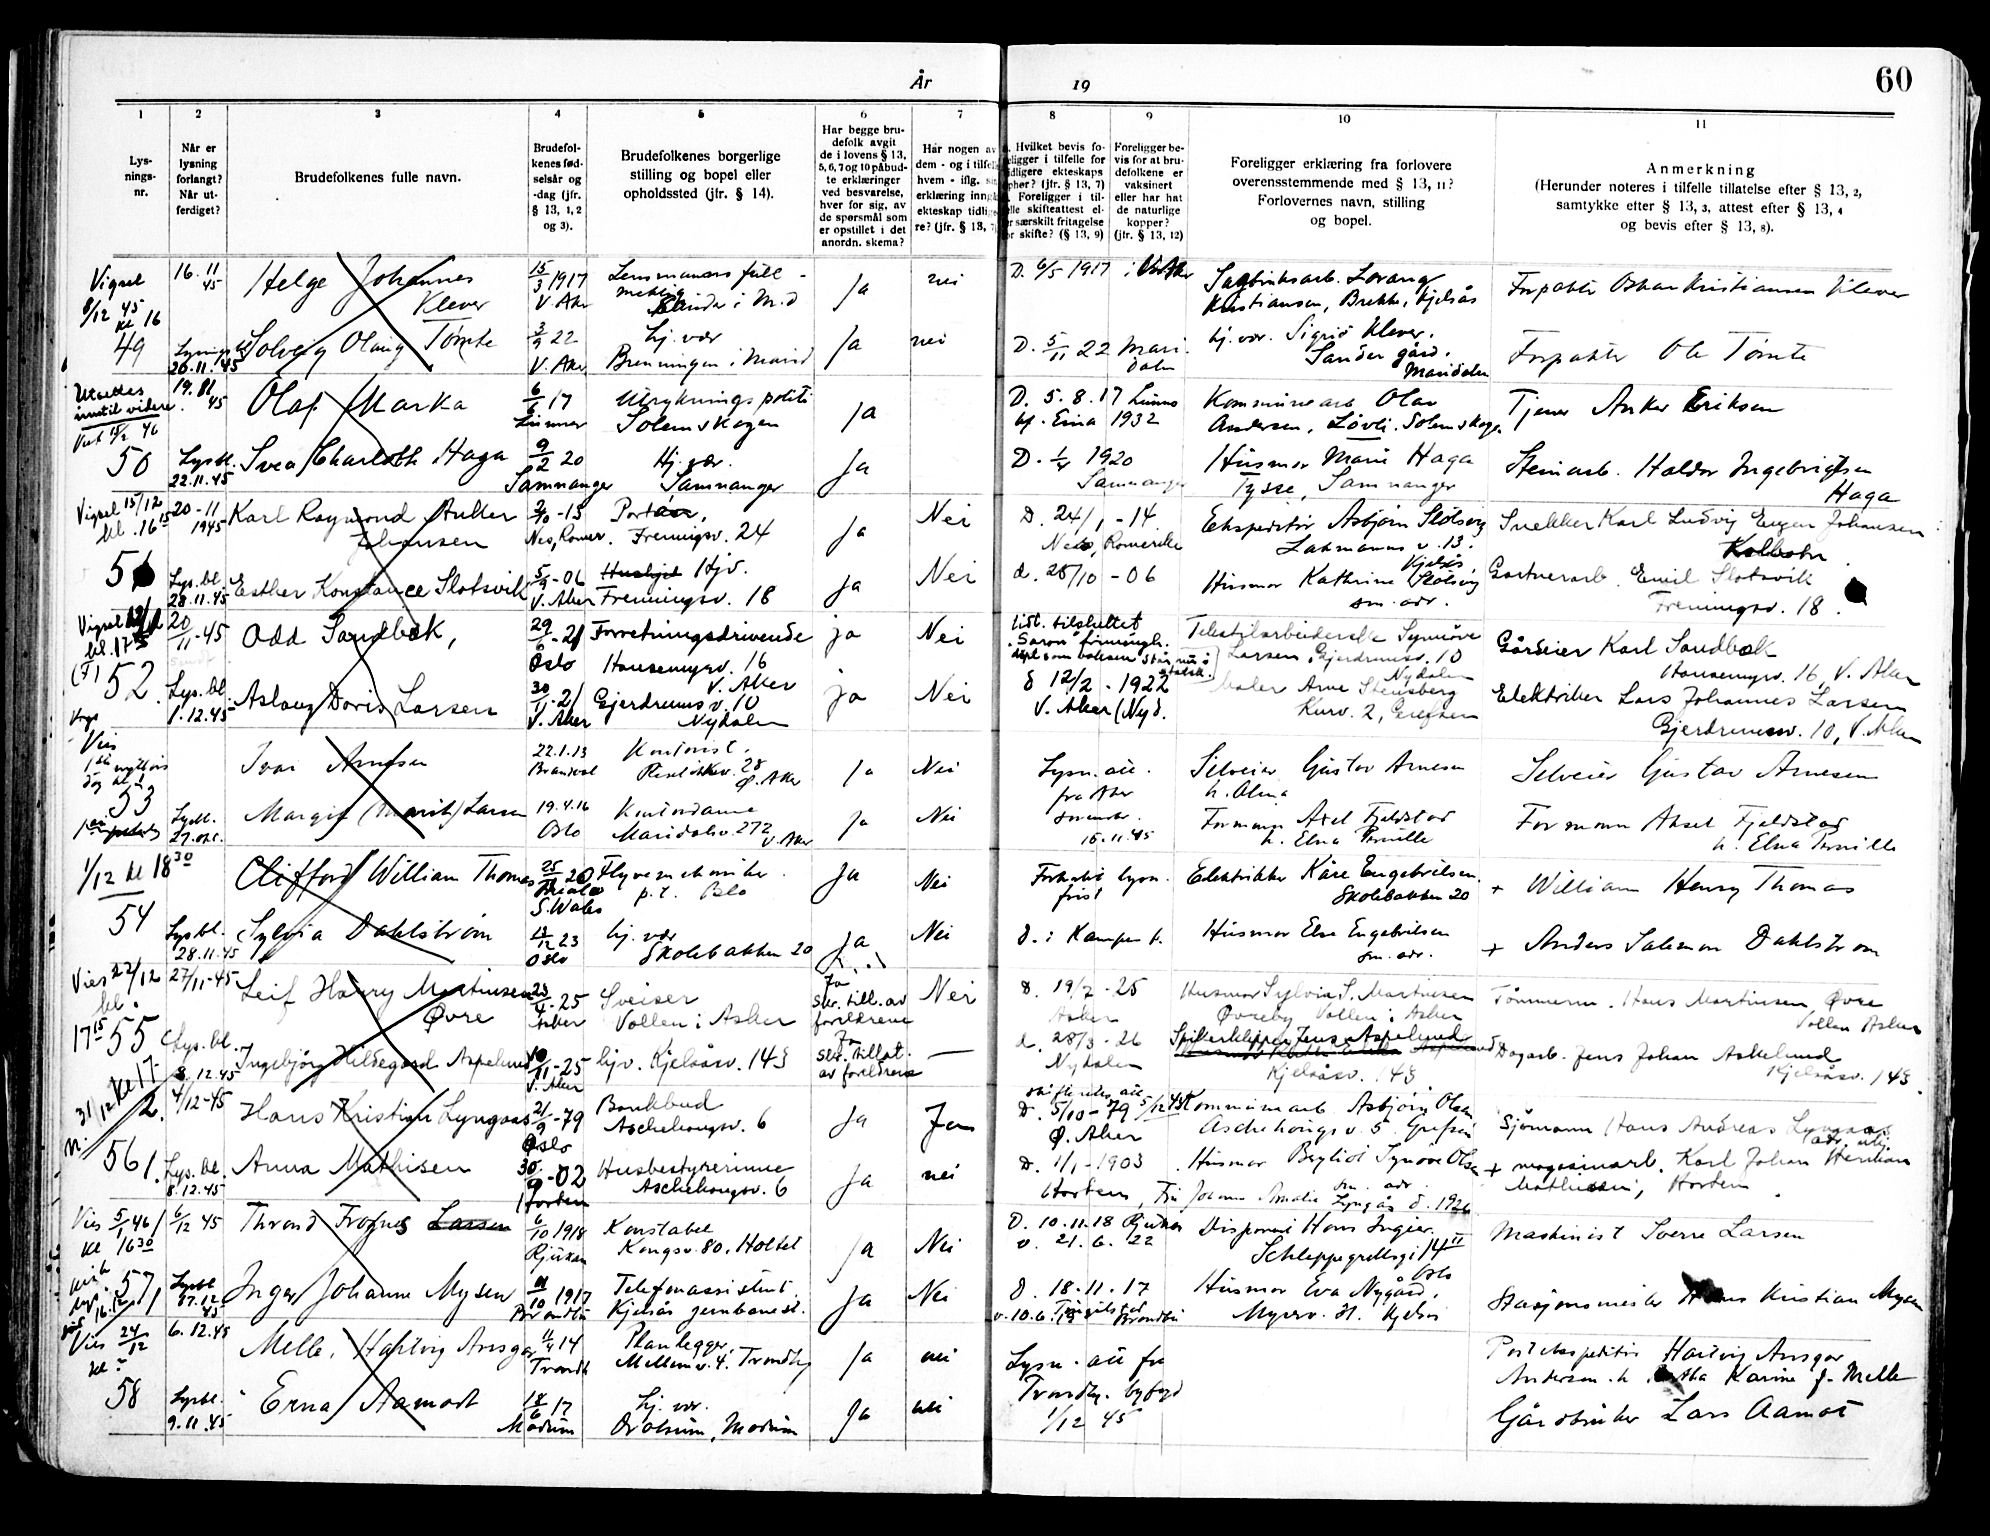 År 19
60
1 2 3 4 5 6 7 8 9 10 11
Lys-
nings-
nr.
Når er
lysning
forlangt?
Når ut-
ferdiget?
Brudefolkenes fulle navn.
Brudefol-
kenes fød-
selsår og
-dag (jfr.
§ 13, 1, 2
og 3).
Brudefolkenes borgerlige
stilling og bopel eller
opholdssted (jfr. § 14).
Har begge bru-
defolk avgit
de i lovens § 13,
5, 6, 7 og 10 påbud-
te erklæringer
ved besvarelse,
hver for sig, av
de spørsmål som
er opstillet i det
anordn. skema?
Har nogen av
dem - og i tilfel
hvem - iflg.
erklæring inng
ekteskap tidlig
re? (jfr. § 13,
Hvilket bevis fo-
religger i tilfelle for
tidligere ekteskaps
ophør? (jfr. § 13, 7)
Foreligger i til-
felle skifteattest el-
er særskilt fritagelse
for skifte? (§ 13, 9)
Foreligger be-
vis for at bru-
defolkene er
vaksinert
eller har hat
de naturlige
kopper?
(jfr. § 13, 12)
Foreligger erklæring fra forlovere
overensstemmende med § 13, 11?
Forlovernes navn, stilling
og bopel.
Anmerkning
(Herunder noteres i tilfelle tillatelse efter § 13, 2,
samtykke efter § 13, 3, attest efter § 13, 4
og bevis efter § 13, 8).
Vigsel 8/12 45 kl 16
49
16.11 45
Helge Johannes Klever
15/3 1917 V. Aker
Lensmanns full-
mektig Sander i M.d
Ja nei
D. 6/5 1917 i V. Aker
Sagbruksarb. Lorang
Kristiansen, Brekke, Kjelsås
Forpakter Oskar Kristiansen Klever
26.11.45
Solveig Olaug Tømte
3/9 22 V. Aker
Hj. vær
Brenningen i Marid
Ja nei
D. 5/11 22 Mari-
dalen
hj. vær. Sigrid Klever.
Sander gård.
Maridalen
Forpakter Ole Tømte
Utsettes
inntil videre
50
19.
45
Olaf Marka
6/6 17 Lunner
Utryknings politi
Solemskogen
Ja
D. 5.8.17 Lunner
kf. Eina 1932
Kommunearb Olav
Andersen, Løvli. Solemskogen
Tjener Anker Eriksen
Lysbl. 22.11.45
Svea Charloth Haga
9/2 20 Samnanger
Hj. vær.
Samnanger
Ja
D. 1/4 1920
Samnanger
Husmor Marie Haga
Tysse, Samnanger
Steinarb. Haldor Ingebrigtsen
Haga
Vigsel 15/12
kl. 16 15
51
20-11 1945
Karl Raymond Anker
Johansen
2/10-13
Nes, Romer.
Portør,
Frenningsv. 24
Ja Nei
D. 24/1-14.
Nes, Romerike
Ekspeditør Asbjørn Slotsvig
Lakmanns v. 13.
Kjelsås
Snekker Karl Ludvig Eugen Johansen
Kolbotn
Lys.bl. 28.11.45
Esther Konstance Slotsvik
5/9-06 V. Aker
Hjv.
Frenningsv. 18
Ja Nei
d. 28/10-06
Husmor Kathrine Slotsvig
sm. adr.
Gartnerarb. Emil Slotsvik
Frenningsv. 18.
Vigsel
kl. 17
52
20/11-45
Odd Sandbæk,
29/1-21 Oslo
Forretningsdrivende
Hansemyrsv. 16
V. Aker
ja Nei
List. tilsluttet
"Saron" frimenigh.
Tekstilarbeiderske Synnøve
Larsen, Gjerdrumsv. 10
Nydalen
Gårdeier Karl Sandbæk
Hansemyrv. 16, V. Aker
Lys.bl. 1.12.45
Aslaug Doris Larsen
30/11-21 V. Aker
Gjerdrums v. 10
Nydalen
ja Nei
d 12/2-1922
V. Aker (Nyd.
Maler Arne Stensberg
Kurv. 2, Grefsen
Elektriker Lars Johannes Larsen
Gjerdrumsv. 10, V. Aker
Vies
53
Ivar Arnesen
22.1.13
Kontorist.
28
Ø. Aker
Ja Nei
Lysn. att.
fra Aker
15.11.45
Selveier Gustav Arnesen
h. Alma
Selveier Gustav Arnesen
Lysbl.
Margit (Marit) Larsen
19.4.16 Oslo
Kontordame
Maridalsv. 272
V. Aker
Ja Nei
Formann Axel Fjeldstad
h. Elna Pernille
Formann Aksel Fjeldstad
h. Elna Pernille
1/12 kl 18 30
54
Clifford William Thomas
25/11 20
S. Wales
Flyvemekaniker.
p.t. Oslo
Ja Nei
Forkortet lysn.
frist
Elektrikker Kåre Engebretsen.
Skolebakken 20
+ William Henry Thomas
Lysbl. 28.11.45
Sylvia Dahlstrøm
13/12 23 Oslo
hj. vær
Skolebakken 20
Ja Nei
D. i Kampen k.
Husmor Else Engebretsen
sm. adr.
+ Anders Salomon Dahlstrøm
Vies 22/12
kl.
17 15 55
27/11-45
Leif Harry Martinsen
Øvre
23/4-25 Asker
Sveiser
Vollen i Asker
Ja
skr. till. av
foreldrene
Nei
D. 19/7-25
Asker
Husmor Sylvia S. Martinsen
Øvreby Vollen i Asker
Tømmerm. Hans Martinsen Øvre
Vollen Asker
Lys.bl. 8.12.45
Ingebjørg Hildegard Aspelund
10/11-25 V. Aker
hjv. Kjelsåsv. 143
Ja
skr. tillat.
av foreldrene
—
d. 28/3-26
Nydalen
Spikerklipper Jens Aspelund
Kjelsåsv. 143
Dagarb. Jens Johan Askelund
Kjelsåsv. 143.
31/12 kl 17
56
4/12-45
Hans Kristian Lyngaas
21/9-79 Oslo
Bankbud
Aschehougsv. 6
Ja Ja
D. 5/10-79
Ø. Aker
Kommunearb Asbjørn Olsen
Aschehougs v. 5 Grefsen
Sjømann Hans Andreas Lyngaas
Lys.bl. 8.12.45
Anna Mathisen
30/9-02 Horten
Husbestyrerinne
Aschehougsv. 6
Ja nei
D. 1/1-1903
Horten,
Husmor Bergliot Synnøve Olsen
sm. adr.
Fru Johanne Amalie Lyngås d. 1926
+ magasinarb. Karl Johan Herman
Mathisen, Horten.
Vies 5/1 46
kl 16 30
57
6/12 45
Thrond Frognes Larsen
6/10 1918 Rjukan
Konstabel
Kongsv. 80. Holtet
Ja Nei
D. 10.11.18 Rjukan
v. 21.6.22
Disponent Hans Ingier.
Schleppegrellsgt 14 II
Oslo
Maskinist Sverre Larsen
Lysbl 07.12 45
Inger Johanne Mysen
11/10 1917 Brandbu
Telefonassistent.
Kjelsås jernbanest.
Ja Nei
D. 18.11.17
v. 10.6.19
Brandbu
Husmor Eva Nygård.
Myrerv. Kjelsås
Stasjonsmester Hans Kristian Mysen
Vies 24/12
kl ?
58
6.12.45
Melle, Hartvig Ansgar
11/4 14 Trondh
Planlegger.
Mellemv. 4. Trondhj
Ja nei
Lysn. att fra
Trondhj. byfogd
1/12 45
Postekspeditør Hartvig Ansgar
Andersen. h. Karine f. Melle
Lysbl. 9.11.45
Erna Aamodt
18/6 17 Modum
Hj. vær.
Modum
Ja nei
Gårdbruker Lars Aamot